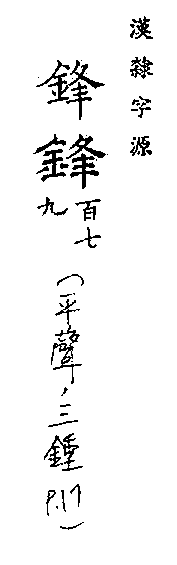 漢隸字源
鋒
鋒 百七
九
(平聲,三鍾 P.17)